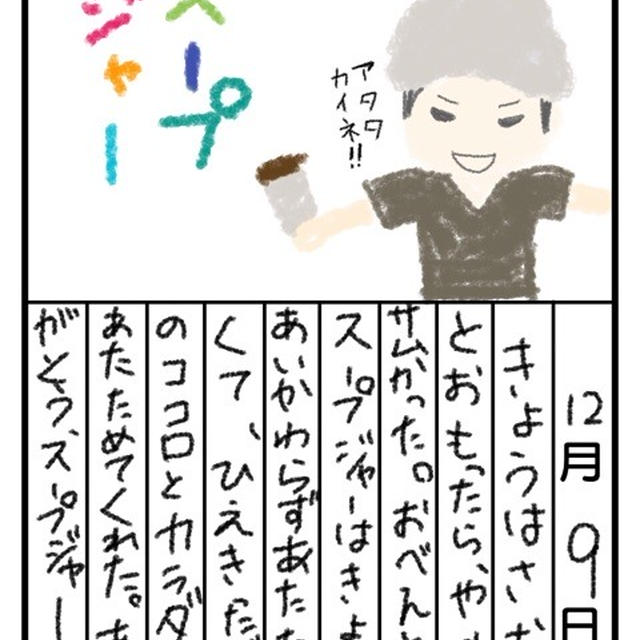 スープ
ジャー
アタタ
カイネ!!
12月9日
きょうはさむ
とおもったら、や
サムかった。おべんと
スープジャーはきょ
あいかわらずあたた
くて、ひえきった
のココロとカラダ
あたためてくれた。あ
がとう、スープジャー